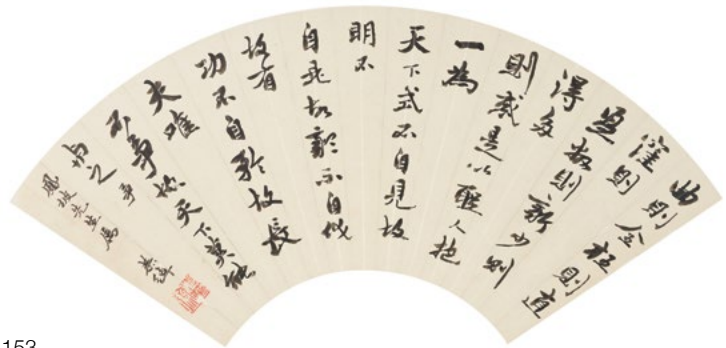 曲則全枉則直
窪則
盈敝則新少則
得多
則惑是以聖人抱
一為
天下式不自見故
明不
自是故彰不自伐
故有
功不自矜故長
夫唯
不爭故天下莫能
与之爭
先生屬
153